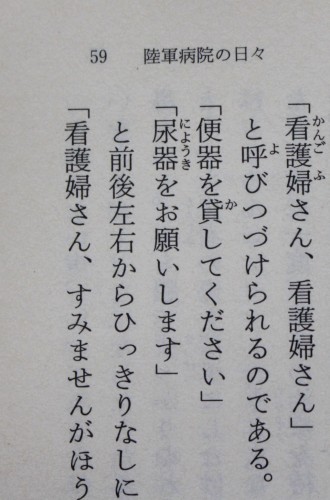 59 陸軍病院の日々
「看護婦さん、看護婦さん」
と呼びつづけられるのである。
「便器を貸してください」
「尿器をお願いします」
と前後左右からひっきりなしに
「看護婦さん、すみませんがほう